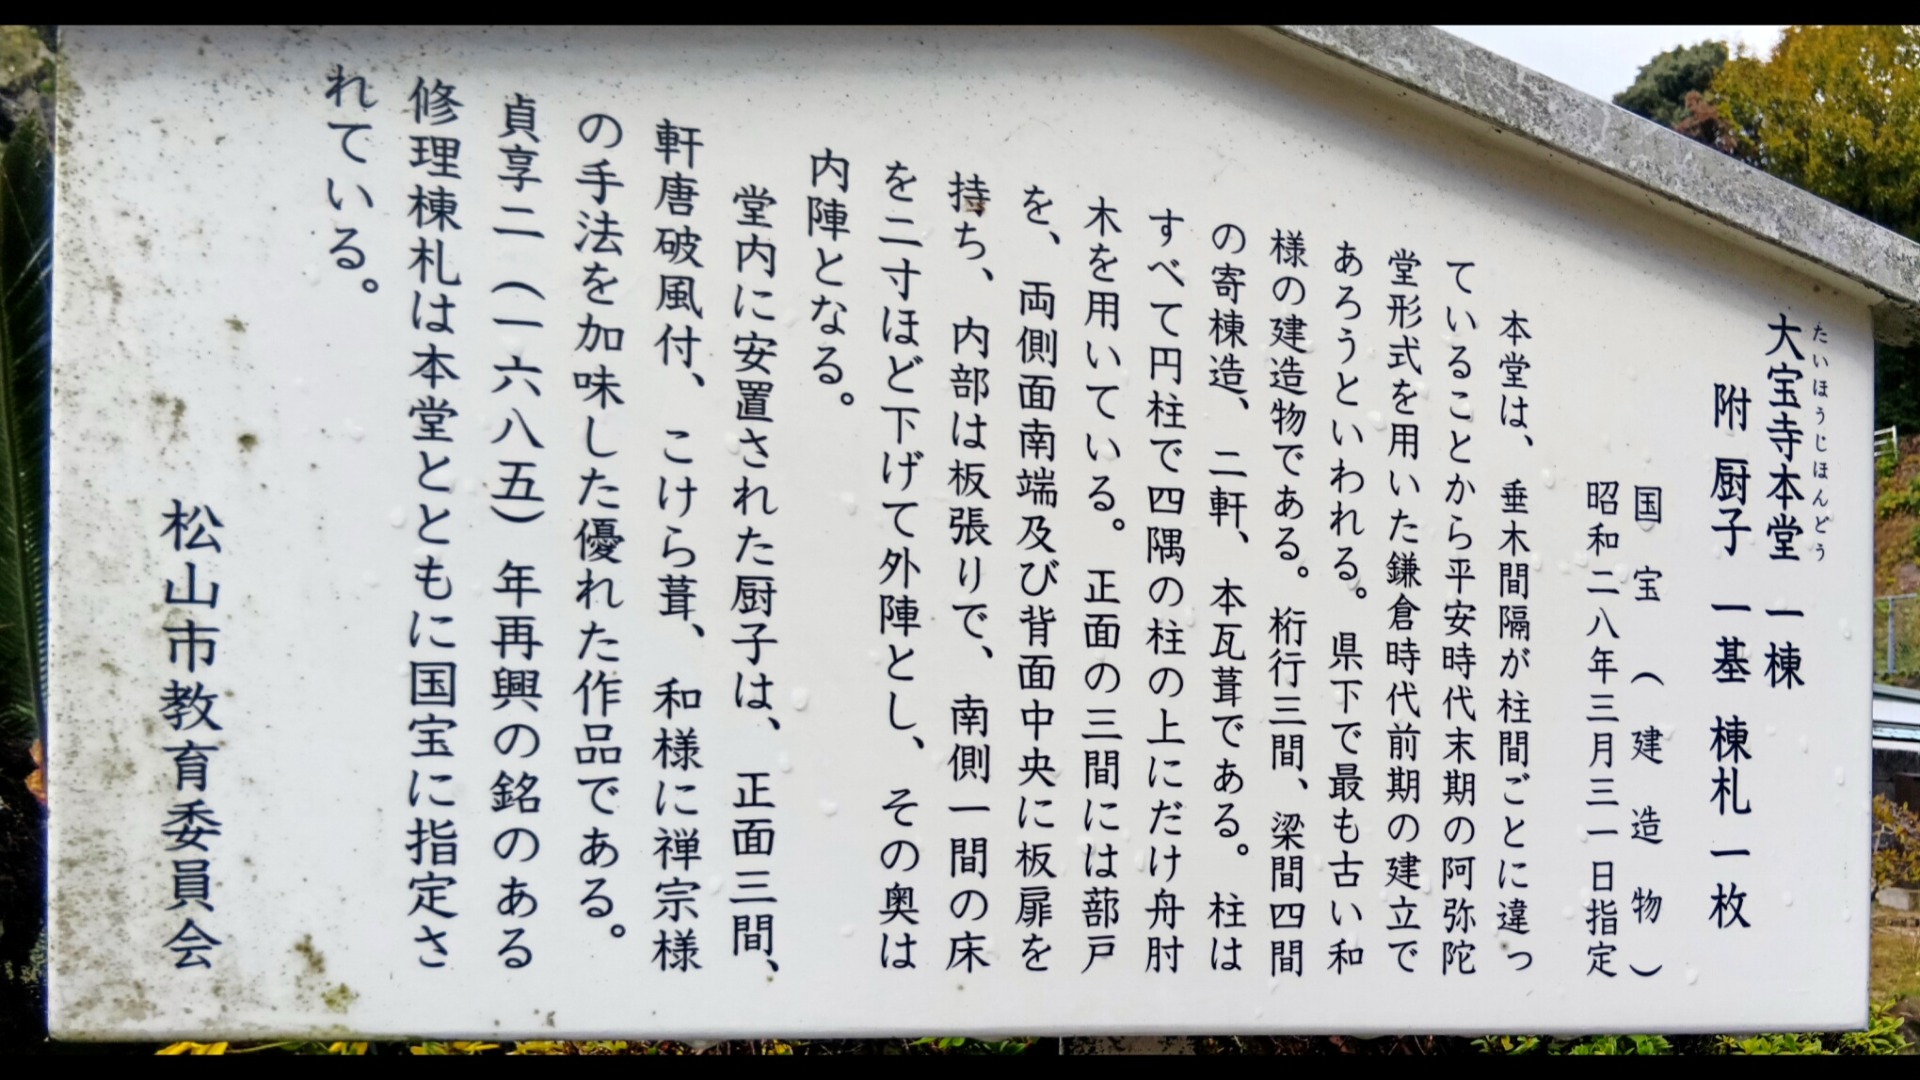 たいほうじほんどう
大宝寺本堂 一棟
附 厨子 一基 棟札 一枚
国宝（建造物）
昭和二八年三月三一日指定
本堂は、垂木間隔が柱間ごとに違っ
ていることから平安時代末期の阿弥陀
堂形式を用いた鎌倉時代前期の建立で
あろうといわれる。県下で最も古い和
様の建造物である。桁行三間、梁間四間
の寄棟造、二軒、本瓦葺である。柱は
すべて円柱で四隅の柱の上にだけ舟肘
木を用いている。正面の三間には蔀戸
を、両側面南端及び背面中央に板扉を
持ち、内部は板張りで、南側一間の床
を二寸ほど下げて外陣とし、その奥は
内陣となる。
堂内に安置された厨子は、正面三間、
軒唐破風付、こけら葺、和様に禅宗様
の手法を加味した優れた作品である。
貞享二（一六八五）年再興の銘のある
修理棟札は本堂とともに国宝に指定さ
れている。
松山市教育委員会